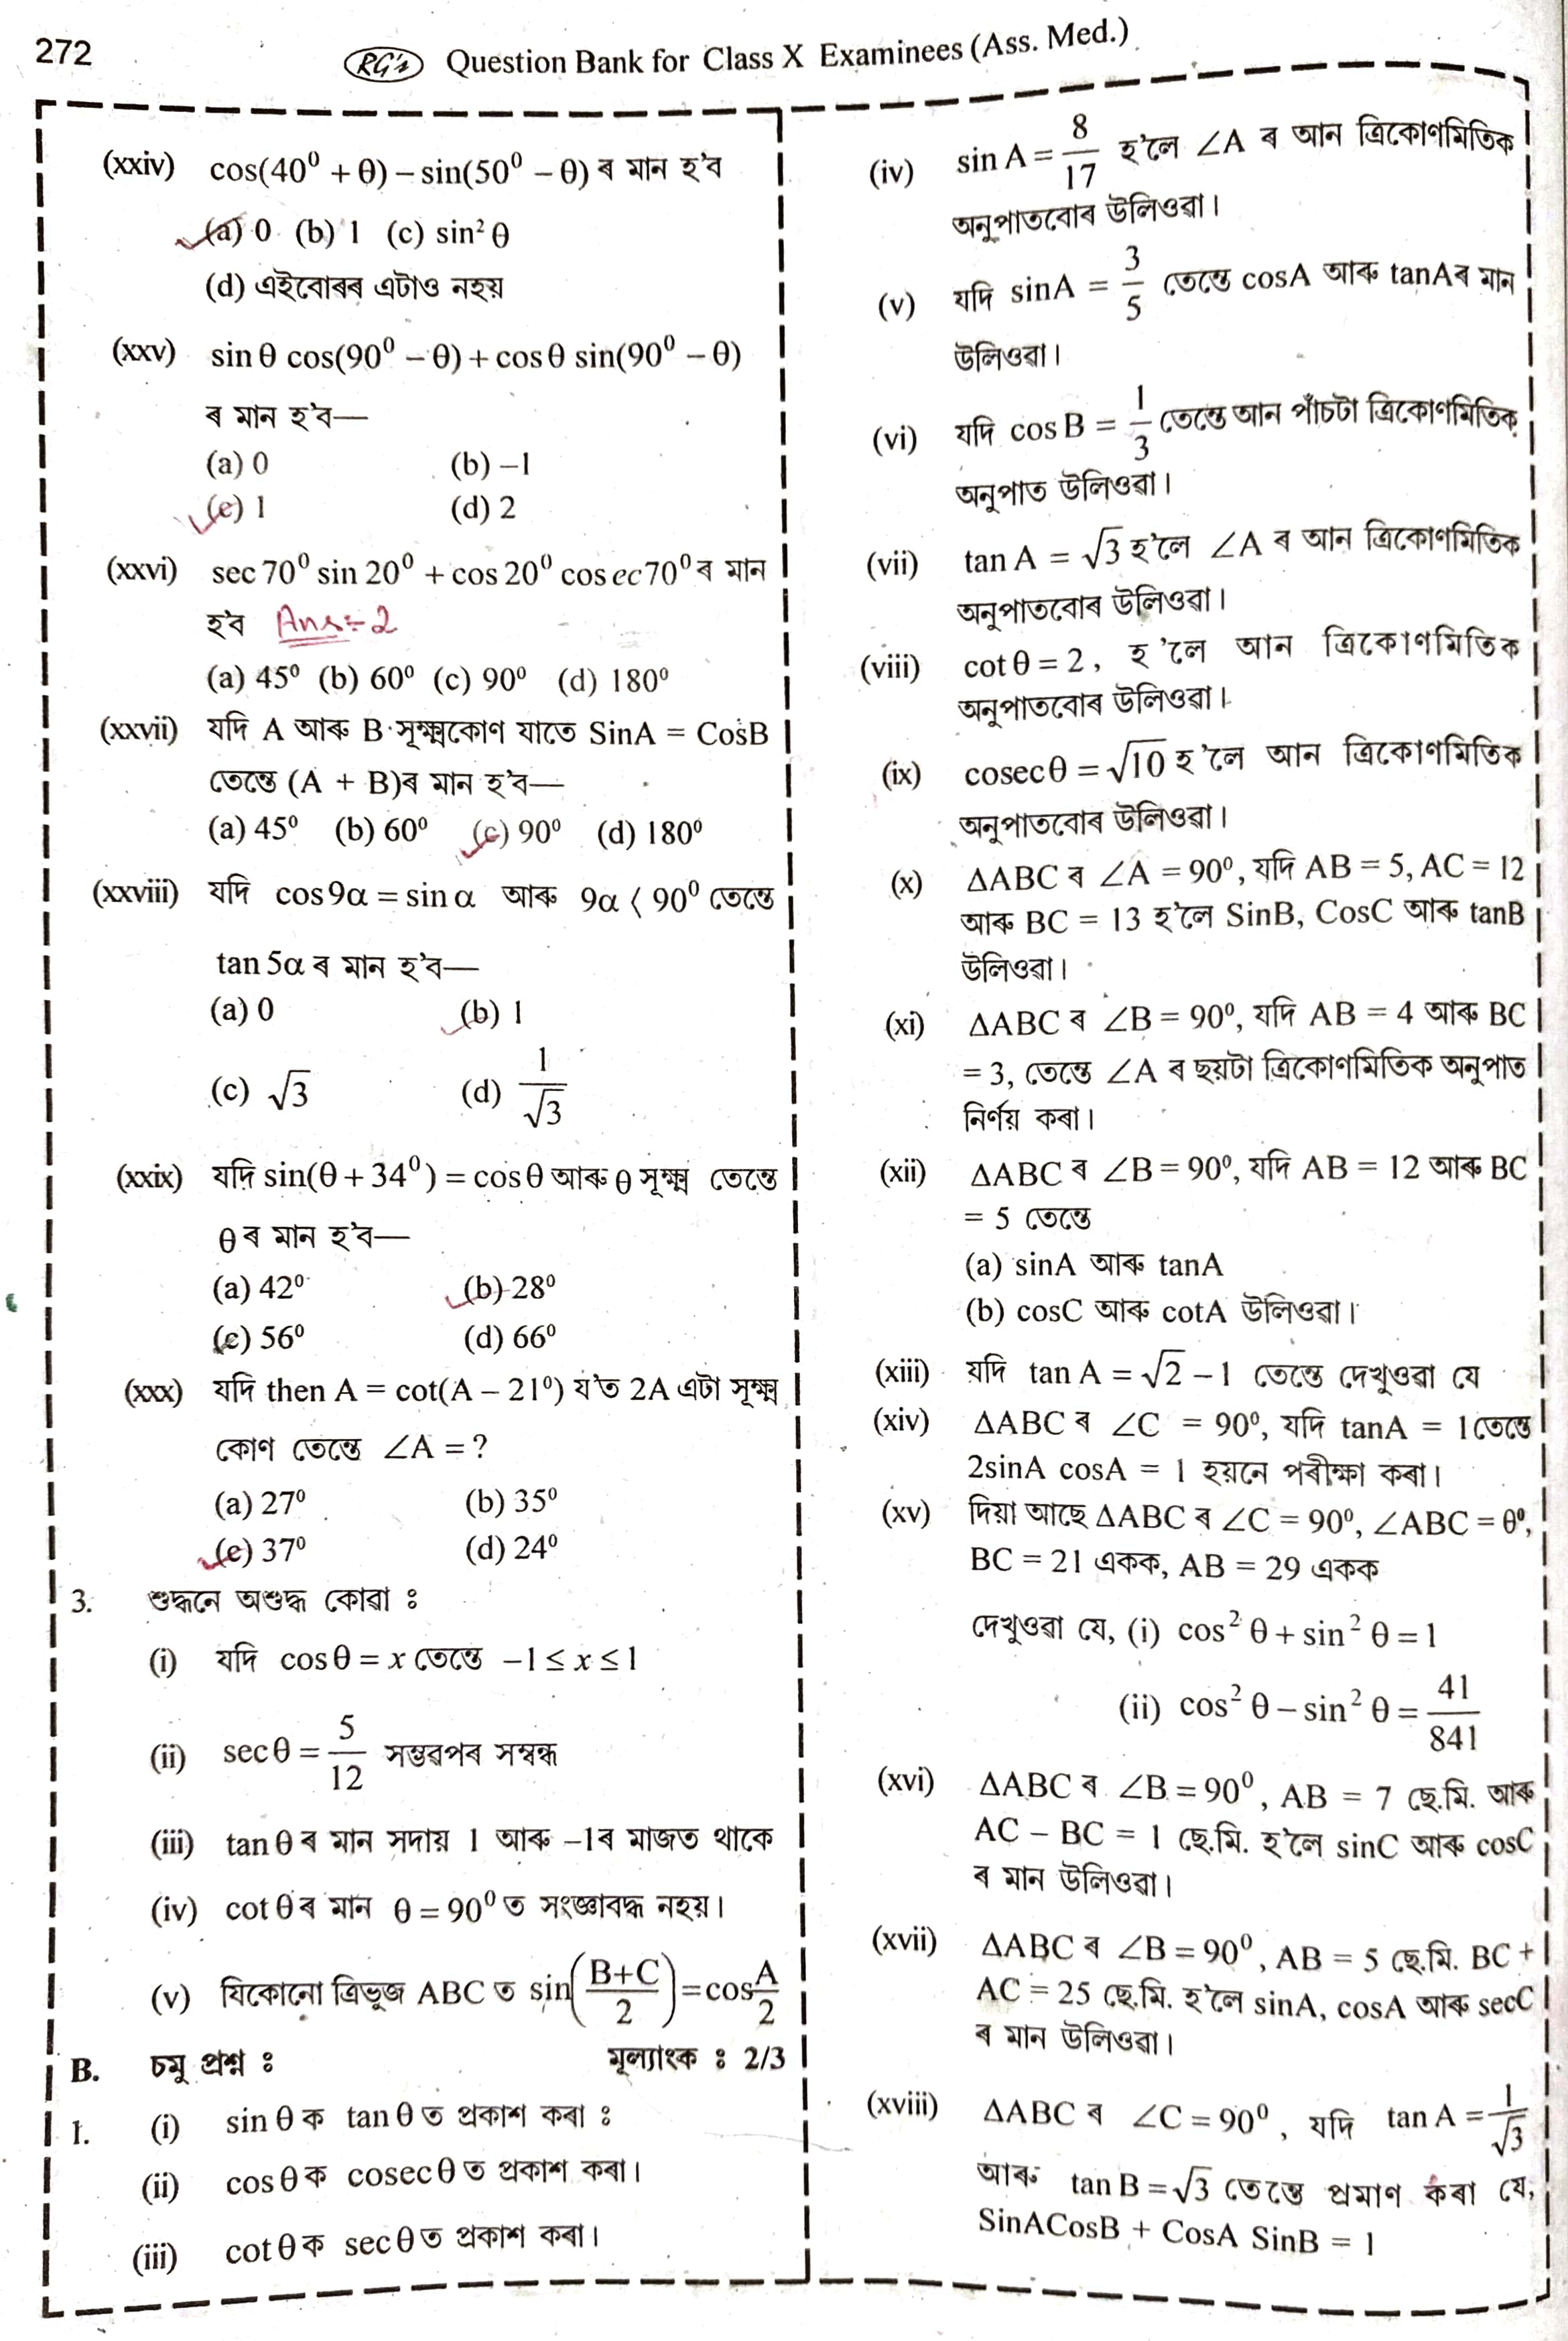 272
RG's Question Bank for Class X Examinees (Ass. Med.)
(xxiv) cos(40⁰ + θ) – sin(50⁰ – θ) ৰ মান হ'ব
(a) 0 (b) 1 (c) sin² θ
(d) এইবোৰৰ এটাও নহয়
(xxv) sin θ cos(90⁰ – θ) + cos θ sin(90⁰ – θ)
ৰ মান হ'ব—
(a) 0 (b) –1
(c) 1 (d) 2
(xxvi) sec 70⁰ sin 20⁰ + cos 20⁰ cosec70⁰ ৰ মান
হ'ব Ans:- 2
(a) 45⁰ (b) 60⁰ (c) 90⁰ (d) 180⁰
(xxvii) যদি A আৰু B সূক্ষ্মকোণ যাতে SinA = CosB
তেন্তে (A + B)ৰ মান হ'ব—
(a) 45⁰ (b) 60⁰ (c) 90⁰ (d) 180⁰
(xxviii) যদি cos 9α = sin α আৰু 9α ⟨ 90⁰ তেন্তে
tan 5α ৰ মান হ'ব—
(a) 0 (b) 1
(c) √3 (d) 1/√3
(xxix) যদি sin(θ + 34⁰) = cos θ আৰু θ সূক্ষ্ম তেন্তে
θ ৰ মান হ'ব—
(a) 42⁰ (b) 28⁰
(c) 56⁰ (d) 66⁰
(xxx) যদি then A = cot(A – 21⁰) য'ত 2A এটা সূক্ষ্ম
কোণ তেন্তে ∠A = ?
(a) 27⁰ (b) 35⁰
(c) 37⁰ (d) 24⁰
3. শুদ্ধনে অশুদ্ধ কোৱা ঃ
(i) যদি cos θ = x তেন্তে –1 ≤ x ≤ 1
(ii) sec θ = 5/12 সম্ভৱপৰ সম্বন্ধ
(iii) tan θ ৰ মান সদায় 1 আৰু –1ৰ মাজত থাকে
(iv) cot θ ৰ মান θ = 90⁰ ত সংজ্ঞাবদ্ধ নহয়।
(v) যিকোনো ত্ৰিভুজ ABC ত sin((B+C)/2) = cos A/2
B. চমু প্ৰশ্ন ঃ মূল্যাংক ঃ 2/3
1. (i) sin θ ক tan θ ত প্ৰকাশ কৰা ঃ
(ii) cos θ ক cosec θ ত প্ৰকাশ কৰা।
(iii) cot θ ক sec θ ত প্ৰকাশ কৰা।
(iv) sin A = 8/17 হ'লে ∠A ৰ আন ত্ৰিকোণমিতিক
অনুপাতবোৰ উলিওৱা।
(v) যদি sinA = 3/5 তেন্তে cosA আৰু tanAৰ মান
উলিওৱা।
(vi) যদি cos B = 1/3 তেন্তে আন পাঁচটা ত্ৰিকোণমিতিক
অনুপাত উলিওৱা।
(vii) tan A = √3 হ'লে ∠A ৰ আন ত্ৰিকোণমিতিক
অনুপাতবোৰ উলিওৱা।
(viii) cot θ = 2, হ'লে আন ত্ৰিকোণমিতিক
অনুপাতবোৰ উলিওৱা।
(ix) cosec θ = √10 হ'লে আন ত্ৰিকোণমিতিক
অনুপাতবোৰ উলিওৱা।
(x) ΔABC ৰ ∠A = 90⁰, যদি AB = 5, AC = 12
আৰু BC = 13 হ'লে SinB, CosC আৰু tanB
উলিওৱা।
(xi) ΔABC ৰ ∠B = 90⁰, যদি AB = 4 আৰু BC
= 3, তেন্তে ∠A ৰ ছয়টা ত্ৰিকোণমিতিক অনুপাত
নিৰ্ণয় কৰা।
(xii) ΔABC ৰ ∠B = 90⁰, যদি AB = 12 আৰু BC
= 5 তেন্তে
(a) sinA আৰু tanA
(b) cosC আৰু cotA উলিওৱা।
(xiii) যদি tan A = √2 – 1 তেন্তে দেখুওৱা যে
(xiv) ΔABC ৰ ∠C = 90⁰, যদি tanA = 1 তেন্তে
2sinA cosA = 1 হয়নে পৰীক্ষা কৰা।
(xv) দিয়া আছে ΔABC ৰ ∠C = 90⁰, ∠ABC = θ⁰,
BC = 21 একক, AB = 29 একক
দেখুওৱা যে, (i) cos² θ + sin² θ = 1
(ii) cos² θ – sin² θ = 41/841
(xvi) ΔABC ৰ ∠B = 90⁰, AB = 7 ছে.মি. আৰু
AC – BC = 1 ছে.মি. হ'লে sinC আৰু cosC
ৰ মান উলিওৱা।
(xvii) ΔABC ৰ ∠B = 90⁰, AB = 5 ছে.মি. BC +
AC = 25 ছে.মি. হ'লে sinA, cosA আৰু secC
ৰ মান উলিওৱা।
(xviii) ΔABC ৰ ∠C = 90⁰, যদি tan A = 1/√3
আৰু tan B = √3 তেন্তে প্ৰমাণ কৰা যে,
SinACosB + CosA SinB = 1